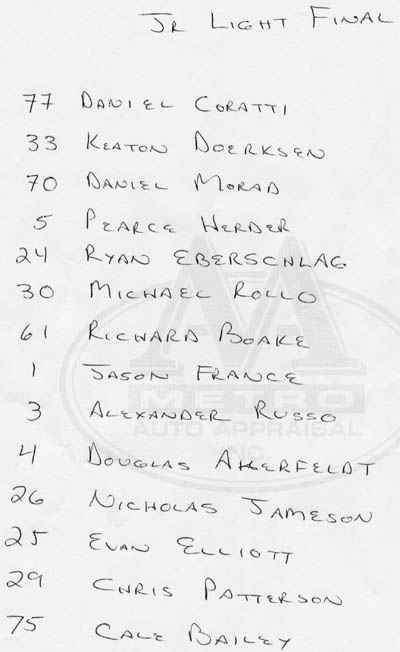 JR LIGHT FINAL
77 DANIEL CORATTI
33 KEATON DOERKSEN
70 DANIEL MORAD
5 PEARCE HERDER
24 RYAN EBERSCHLAG
30 MICHAEL ROLLO
61 RICHARD BOAKE
1 JASON FRANCE
3 ALEXANDER RUSSO
4 DOUGLAS AKERFELDT
26 NICHOLAS JAMESON
25 EVAN ELLIOTT
29 CHRIS PATTERSON
75 CALE BAILEY
AA
METRO
AUTO APPRAISAL
INC.